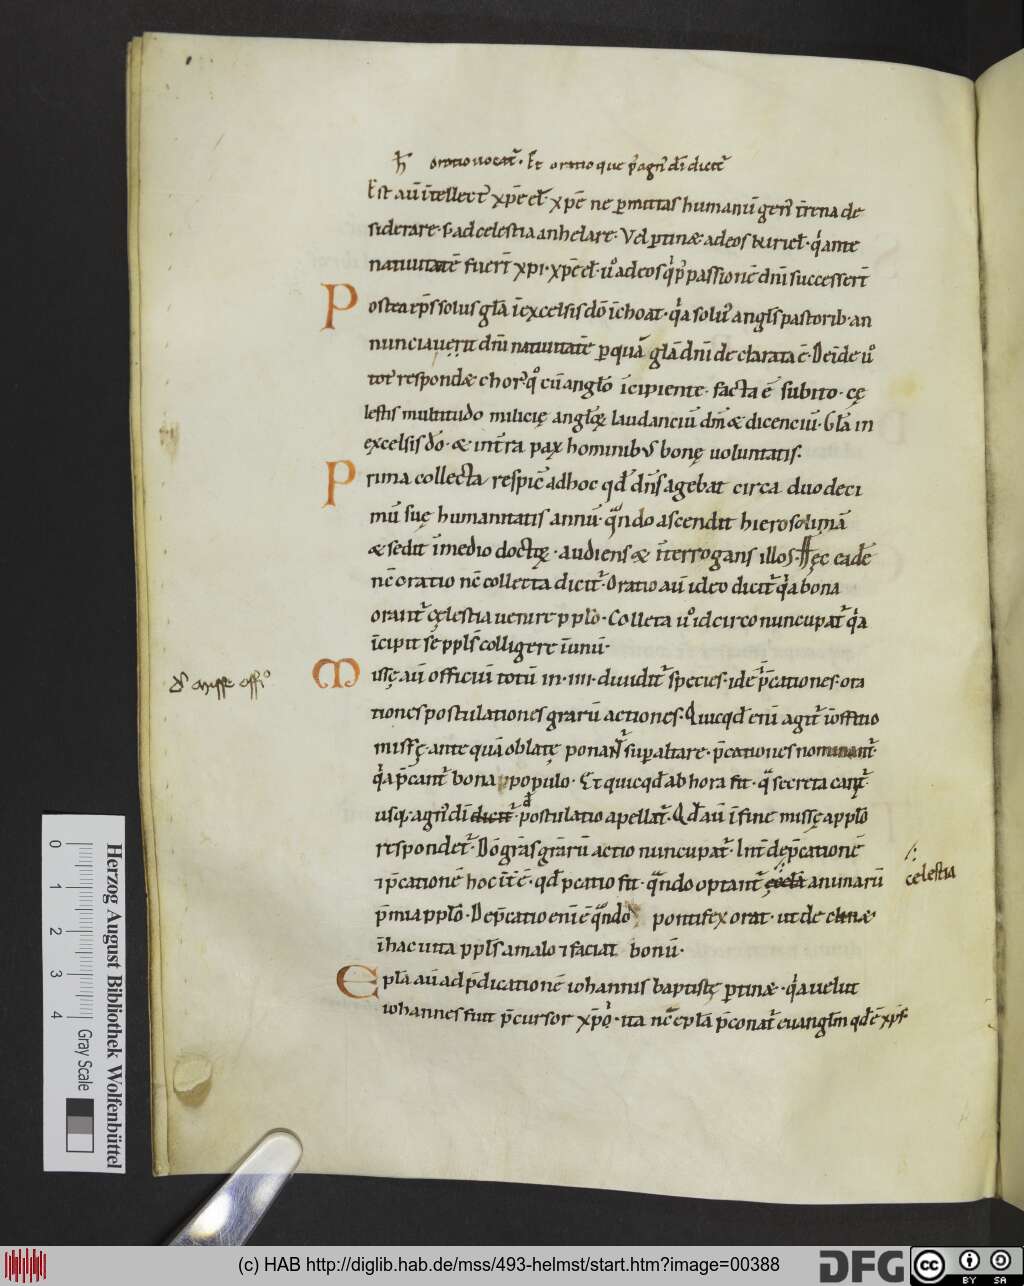 h̅ oratio uocat᷑. Et oratio que p̄ agn᷒ di̅ dicit᷑
Est au̅ i̅tellect᷒ xp̅e el̅. xp̅e ne pmittas humanu̅ gen᷒ t̅rena de
siderare. s; ad celestia anhelare. Vel ptinæ ad eos kiriel̅. qͥ ante
natiuitate̅ fuer̅t xpi. xp̅e el̅. uͦ ad eos qͥ p᷒ passione̅ dn̅i successer̅t
Postea ep̅s solus gl̅a i̅ excelsis dō i̅choat. qͥa solu᷒ angl̅s pastorib. an
nunciauerit dn̅i natiuitate̅ p quā gl̅a dn̅i declarata ē. Deīde uͦ
tot᷒ respondæ chor᷒ qͦ cū anglō i̅cipiente. facta ē subito. cę
lestis multitudo milicię anglo̅ꝝ laudanciū dm̅ & dicenciū. Gl̅a in
excelsis dō. & in t̅ra pax hominib᷒ bonę uoluntatis.
Prima collecta respic̅ ad hoc qđ dn̅s agebat circa duodeci
mū suę humanitatis annū. qͣndo ascendit hierosolimā
& sedit i̅ medio doctoꝝ. audiens & i̅terrogans illos. Hęc eadē
nc̅ oratio nc̅ colletta dicit᷑. Oratio au̅ ideo dicit᷑ qͥa bona
orant᷑ cęlestia uenire p plō. Colleta uͦ idcirco nuncupat᷑ qͥa
i̅cipit se ppl̅s colligere i̅ unū.
Missę au̅ officiū totū in. iiii. diuidit᷑ species. id ē p̄cationes. ora
tiones postulationes gr̅arū actiones. Quicqđ enī agit᷑ i̅ offitio
missę ante quā oblatę ponant᷑ sup altare. p̄cationes nominant᷑.
qͥa p̄cant᷑ bona p populo. Et quicqđ ab hora fit. qͣ secreta cant᷑.
usq; agn᷒ di̅ dicit᷑. postulatio apellat᷑. Qđ au̅ i̅ fine missę a pplō
respondet᷑. Dō gr̅as gr̅arū actio nuncupat᷑. Int̅ dep̄catione̅
⁊ p̄catione̅ hoc i̅t̅ē. qđ p̄catio fit. qͣndo optant᷑ animarū
p̄mia pplō. Dep̄catio enī ē qͣndo pontifex orat. ut de clinæ.
i̅ hac uita ppl̅s a malo ⁊ faciat bonū.
Epl̅a au̅ ad p̄dicatione̅ iohannis baptistę ptinæ. qͥa uelut
iohannes fuit p̄cursor xp̅o. ita nc̅ epl̅a p̄conat᷑ euangl̅m qđ ē xp̅s.
De misse offiͦ
celestia
Herzog August Bibliothek Wolfenbüttel
0 1 2 3 4 Gray Scale
(c) HAB http://diglib.hab.de/mss/493-helmst/start.htm?image=00388
DFG
cc BY SA